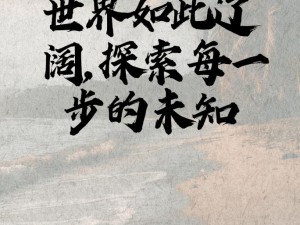 世界如此辽
阔,探索每一
步的未知